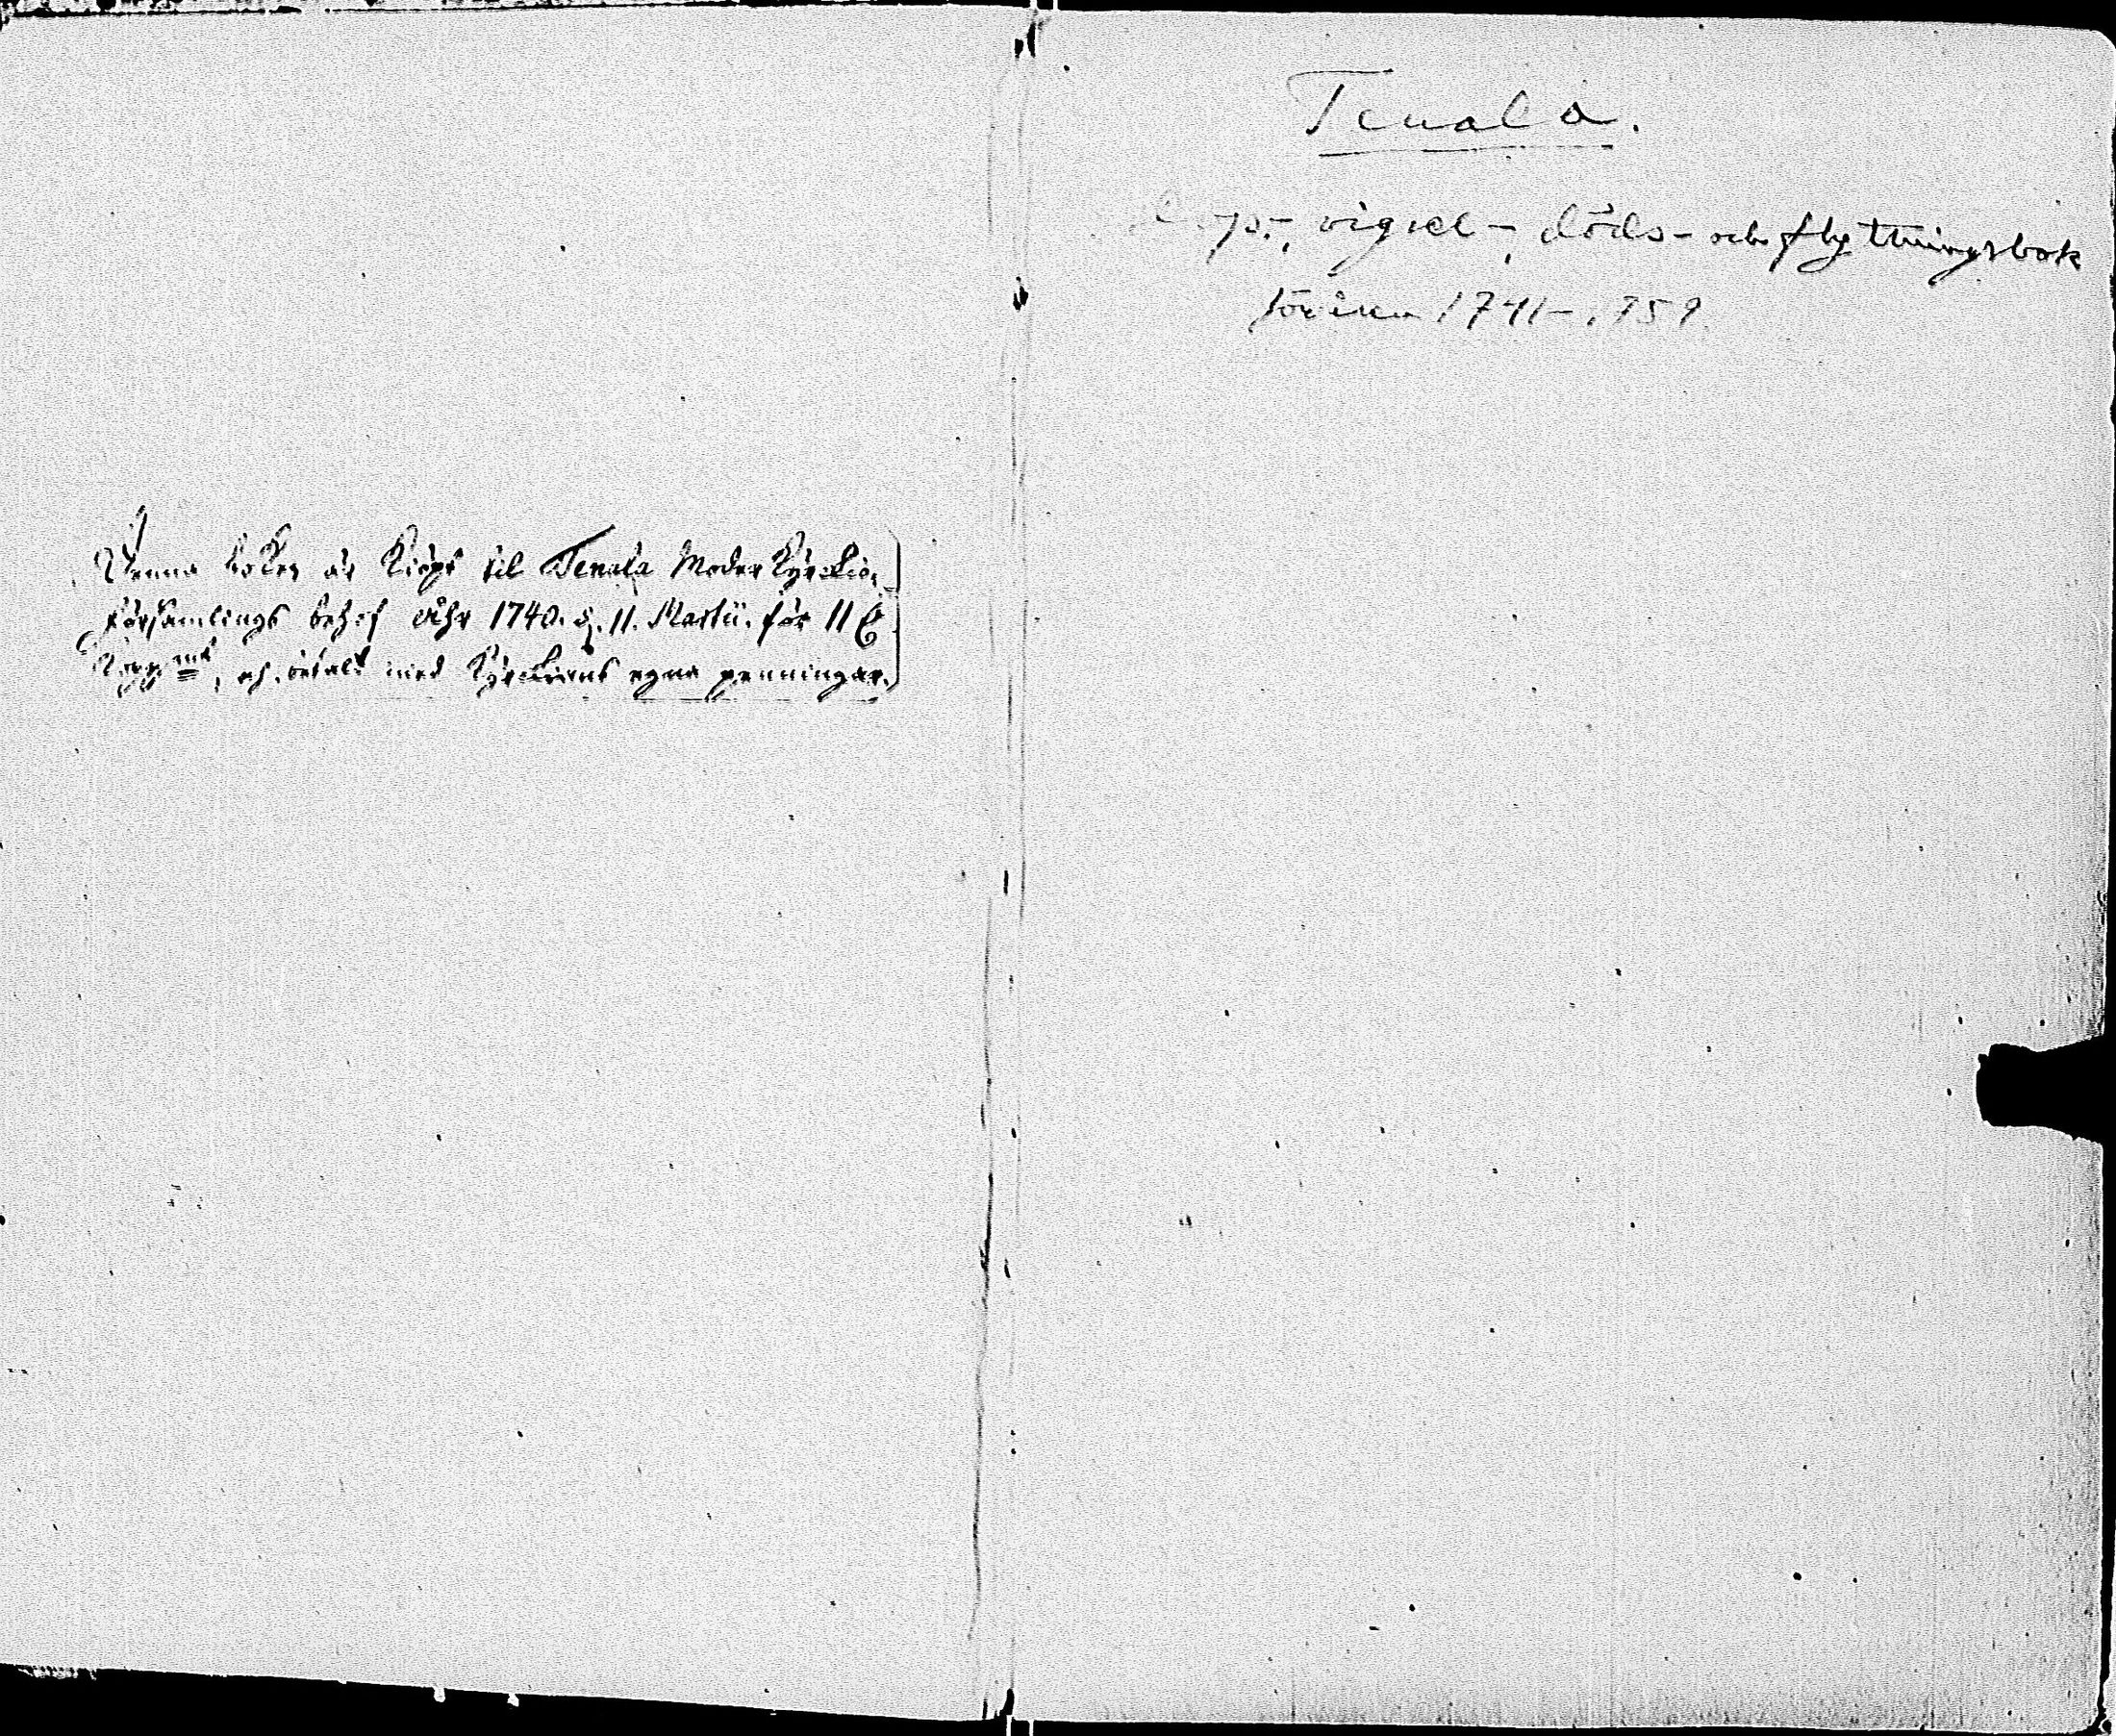 Denna boken är kiöpt til Tenala Moder Kyrckio
församlings behof åhr 1740. d. 11. Martii. för 11
Kopp mt, och betalt med Kyrckians egna penningar.
Tenala.
Dops-, vigsel-, döds- och flyttningsbok
för åren 1741-1759.